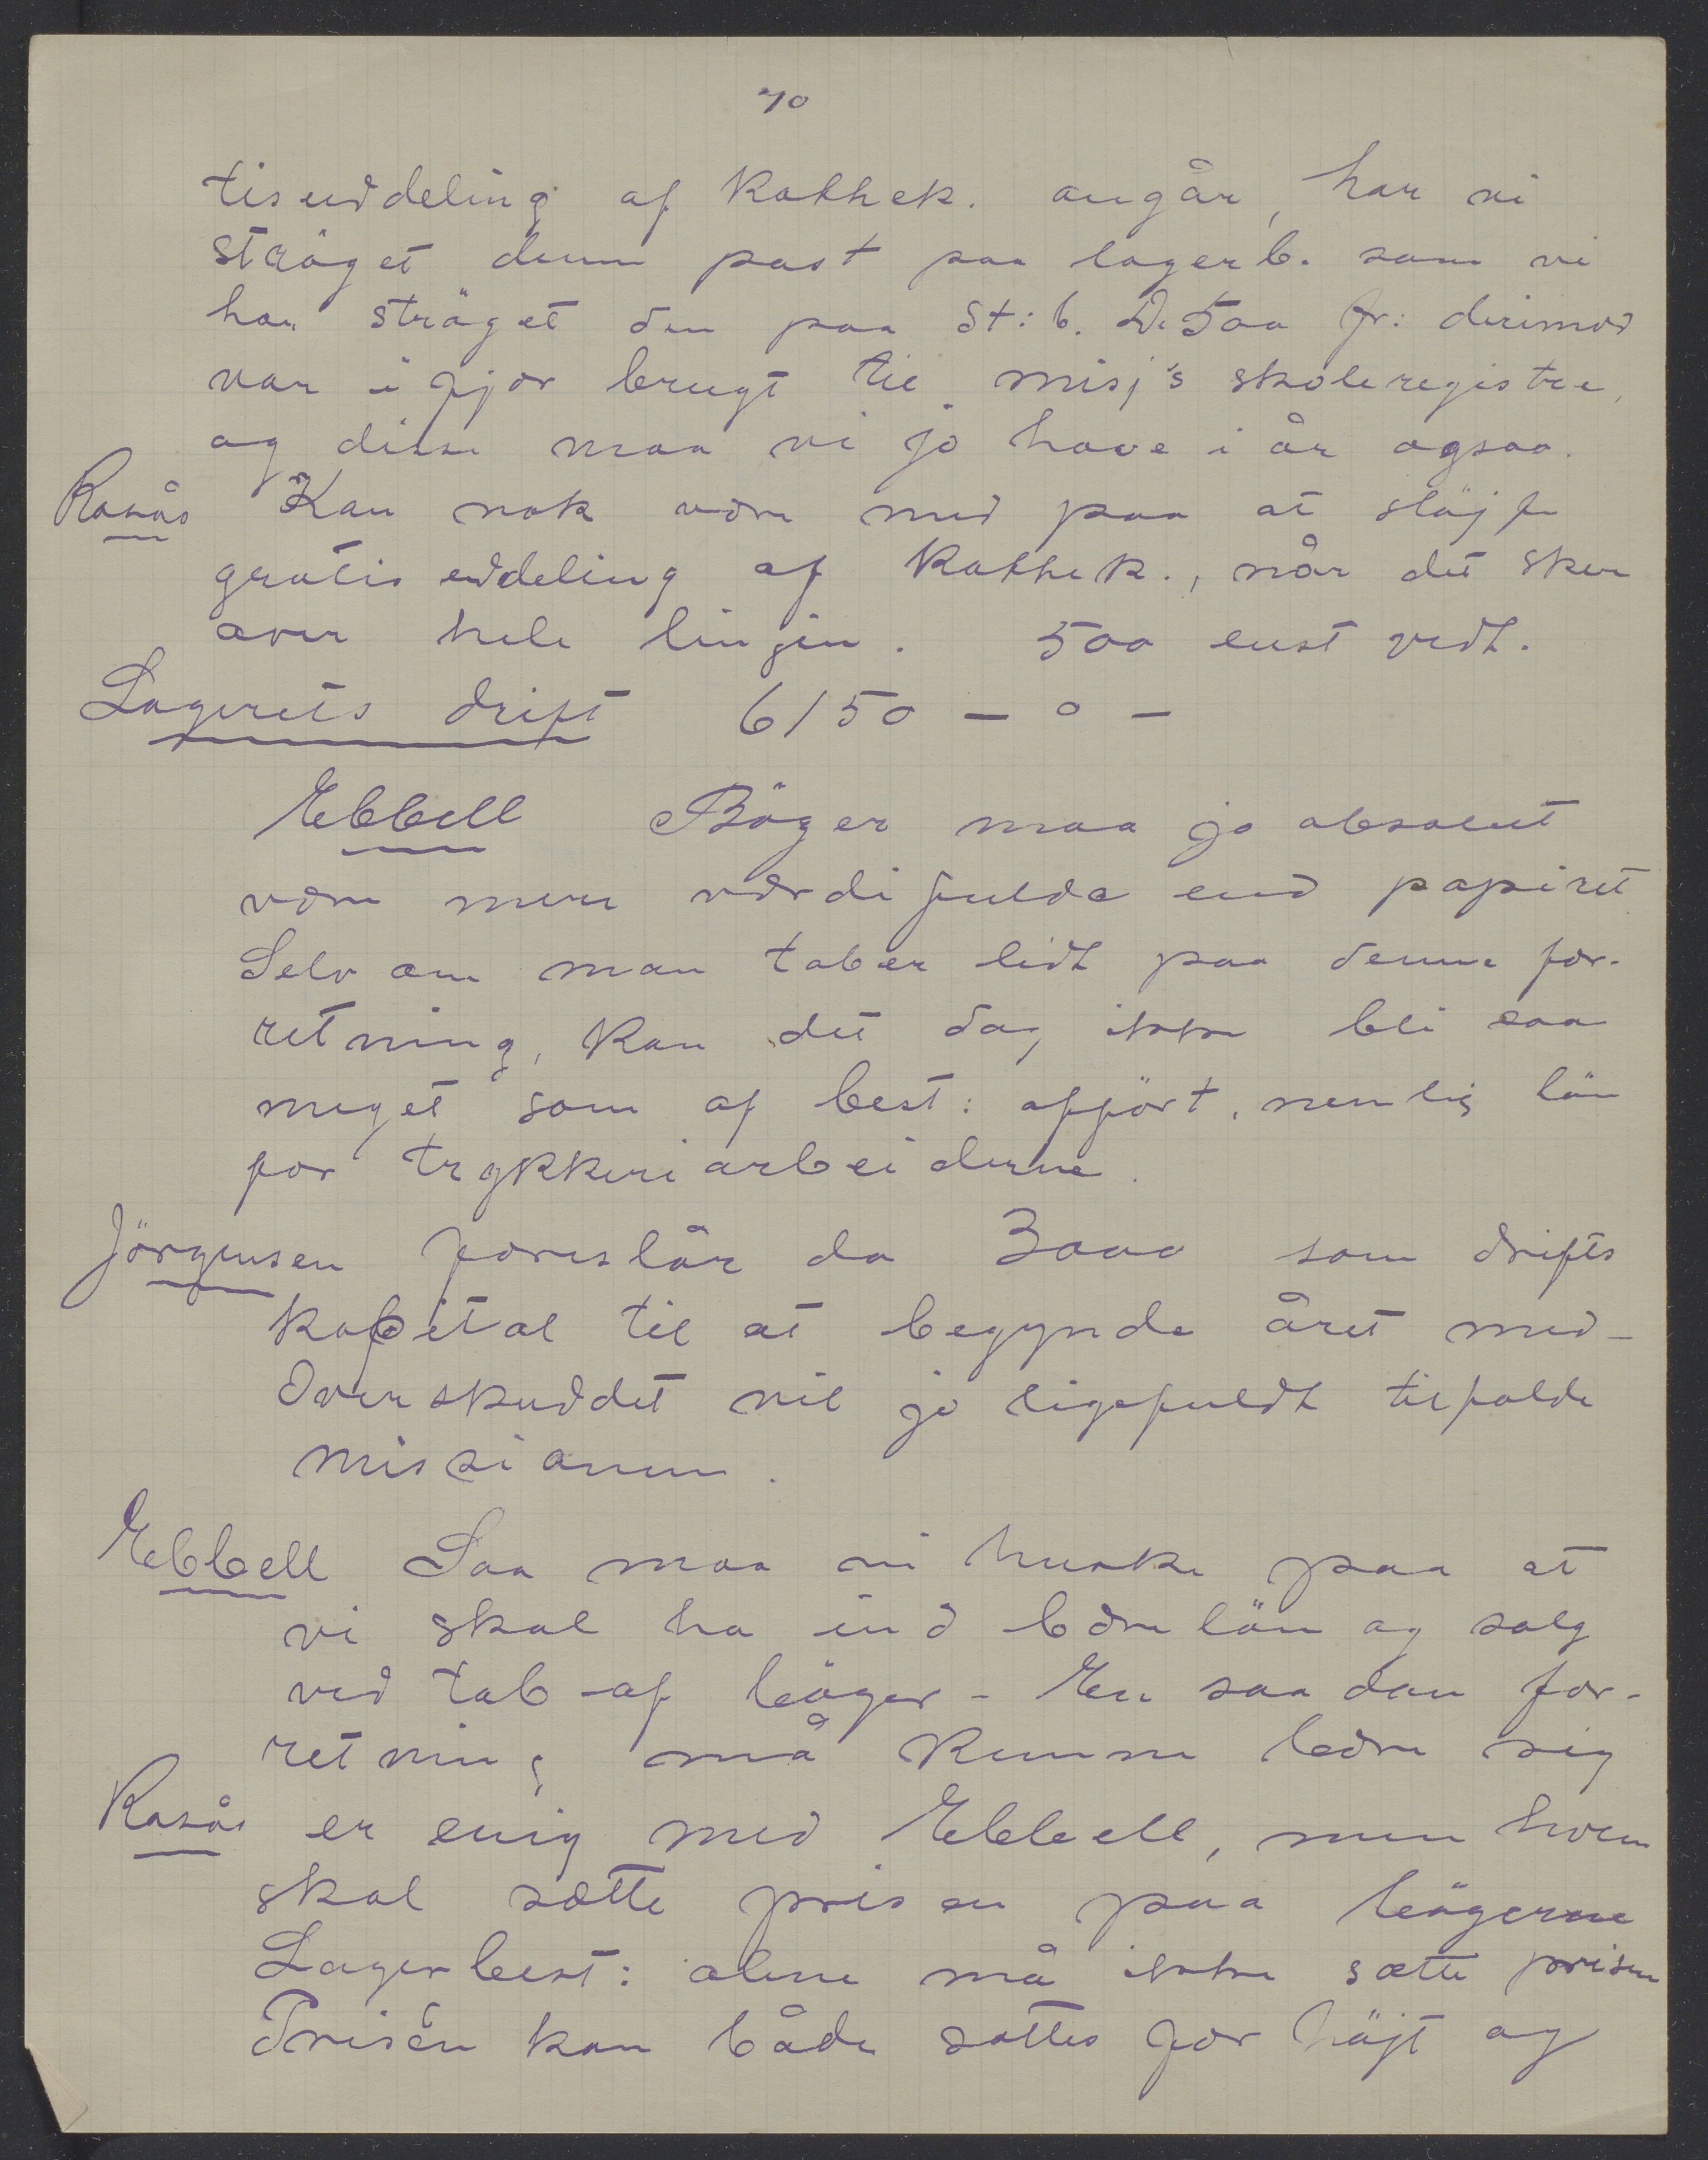 70
tisuddeling af Katkek. angår, har vi
ströget denne post paa lagerb. som vi
har ströget den paa St: b. De 500 fr: derimod
var i fjor brugt til misj's skoleregistre,
og disse maa vi jo have i år ogsaa.
Rosås Kan nok være med paa at slöjfe
gratis uddeling af Katkek., når det sker
over hele linjen. 500 enst vedt.
Lagerets drift 6150 — o —
Ebbell Böger maa jo absolut
være mere værdifulde end papiret
Selv om man taber lidt paa denne for-
retning, kan det dog ikke bli saa
meget som af best: opfört, nemlig lön
for trykkeriarbeiderne.
Jörgensen foreslår da 3000 som drifts
kapital til at begynde året med -
Overskuddet vil jo ligefuldt tilfalde
missionen.
Ebbell Saa maa vi huske paa at
vi skal ha ind bære lön og salg
ved tab af böger - En saadan for-
retning må kunne bære sig
Rosås er enig med Ebbell, men hvem
skal sætte prisen paa bögerne
Lagerbest: alene må ikke sætte prisen
Prisen kan både sættes for höjt og